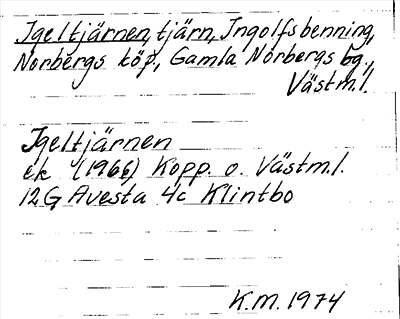 Igeltjärnen, tjärn, Ingolfsbenning,
Norbergs köp, Gamla Norbergs bg.,
Västm.l.
Igeltjärnen
ek (1966) Kopp. o. Västm.l.
12G Avesta 4c Klintbo
K.M. 1974